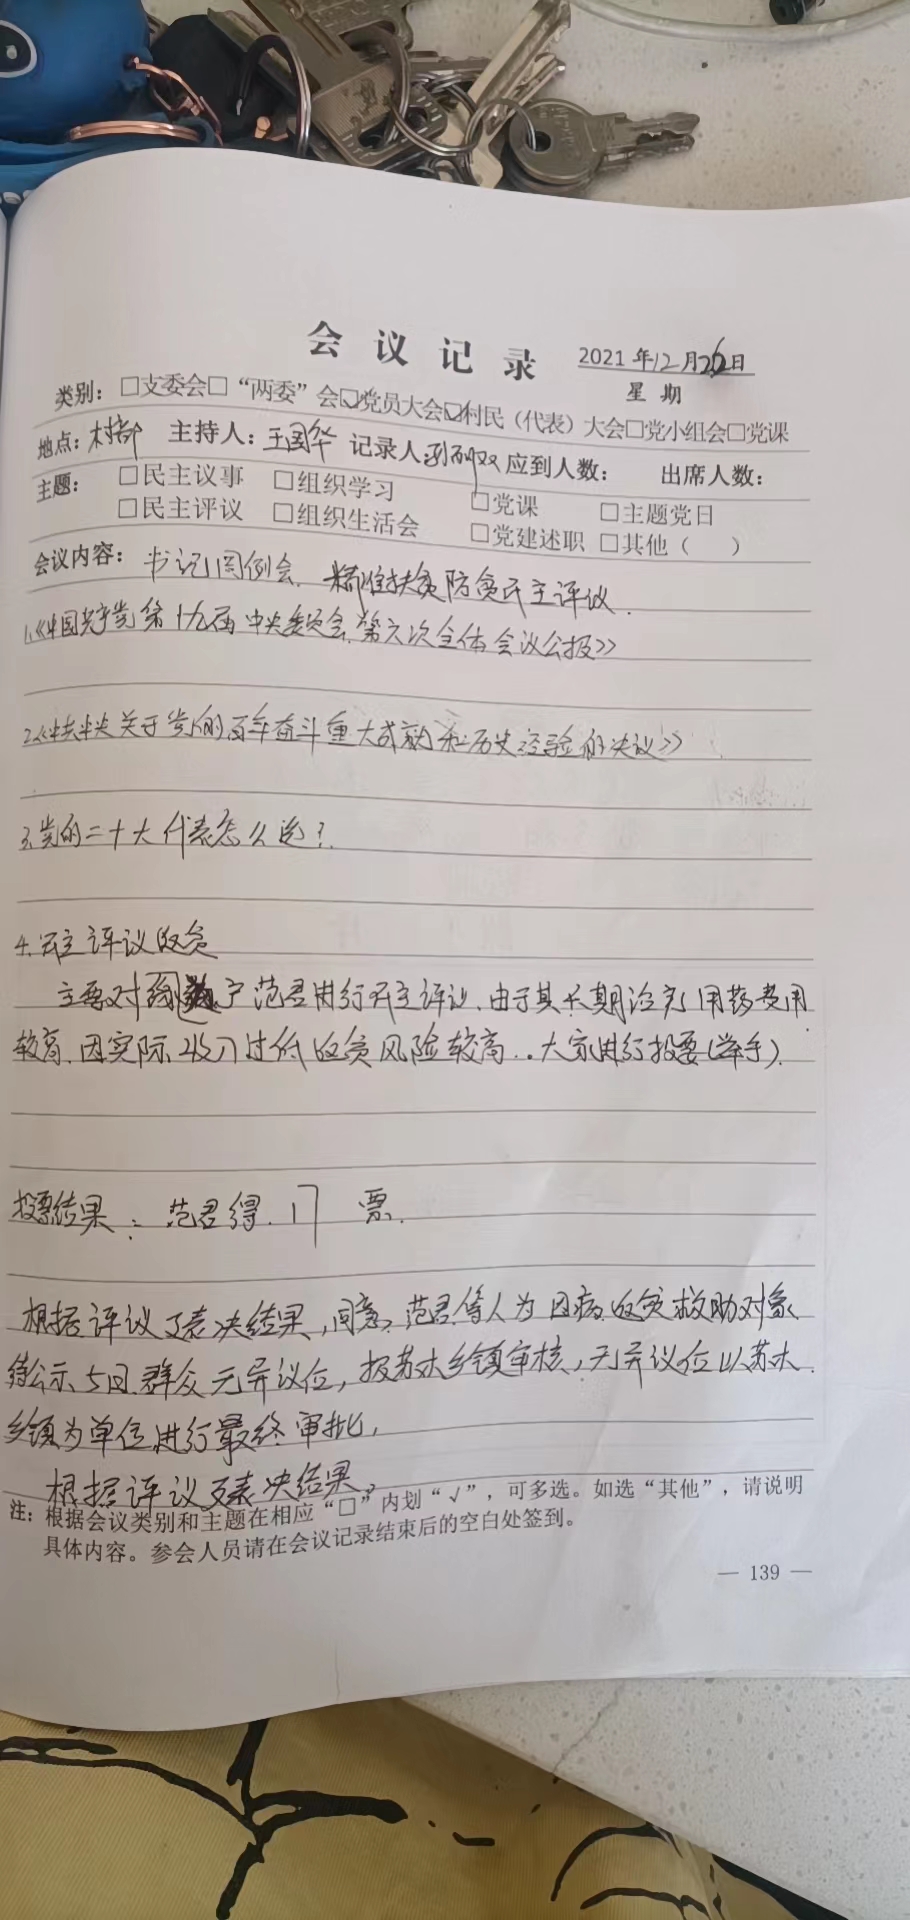 会议记录 2021年12月26日
星期
类别：□支委会□“两委”会☑党员大会☑村民（代表）大会□党小组会□党课
地点：村部 主持人：王国华 记录人： 应到人数： 出席人数：
主题： □民主议事 □组织学习 □党课 □主题党日
□民主评议 □组织生活会 □党建述职 □其他（ ）
会议内容：书记周例会、精准扶贫防贫民主评议.
1.《中国共产党第十九届中央委员会第六次全体会议公报》
2.《中共中央关于党的百年奋斗重大成就和历史经验的决议》
3.党的二十大代表怎么选？
4.民主评议返贫
主要对 户范君进行民主评议.由于其长期治病用药费用
较高.因实际收入过低返贫风险较高..大家进行投票(举手).
投票结果：范君得.17 票.
根据评议表决结果,同意.范君等人为因病返贫救助对象
待公示5日.群众无异议后,报苏木乡镇审核,无异议后以苏木
乡镇为单位进行最终审批,
根据评议表决结果,
注：根据会议类别和主题在相应“□”内划“√”，可多选。如选“其他”，请说明
具体内容。参会人员请在会议记录结束后的空白处签到。
— 139 —